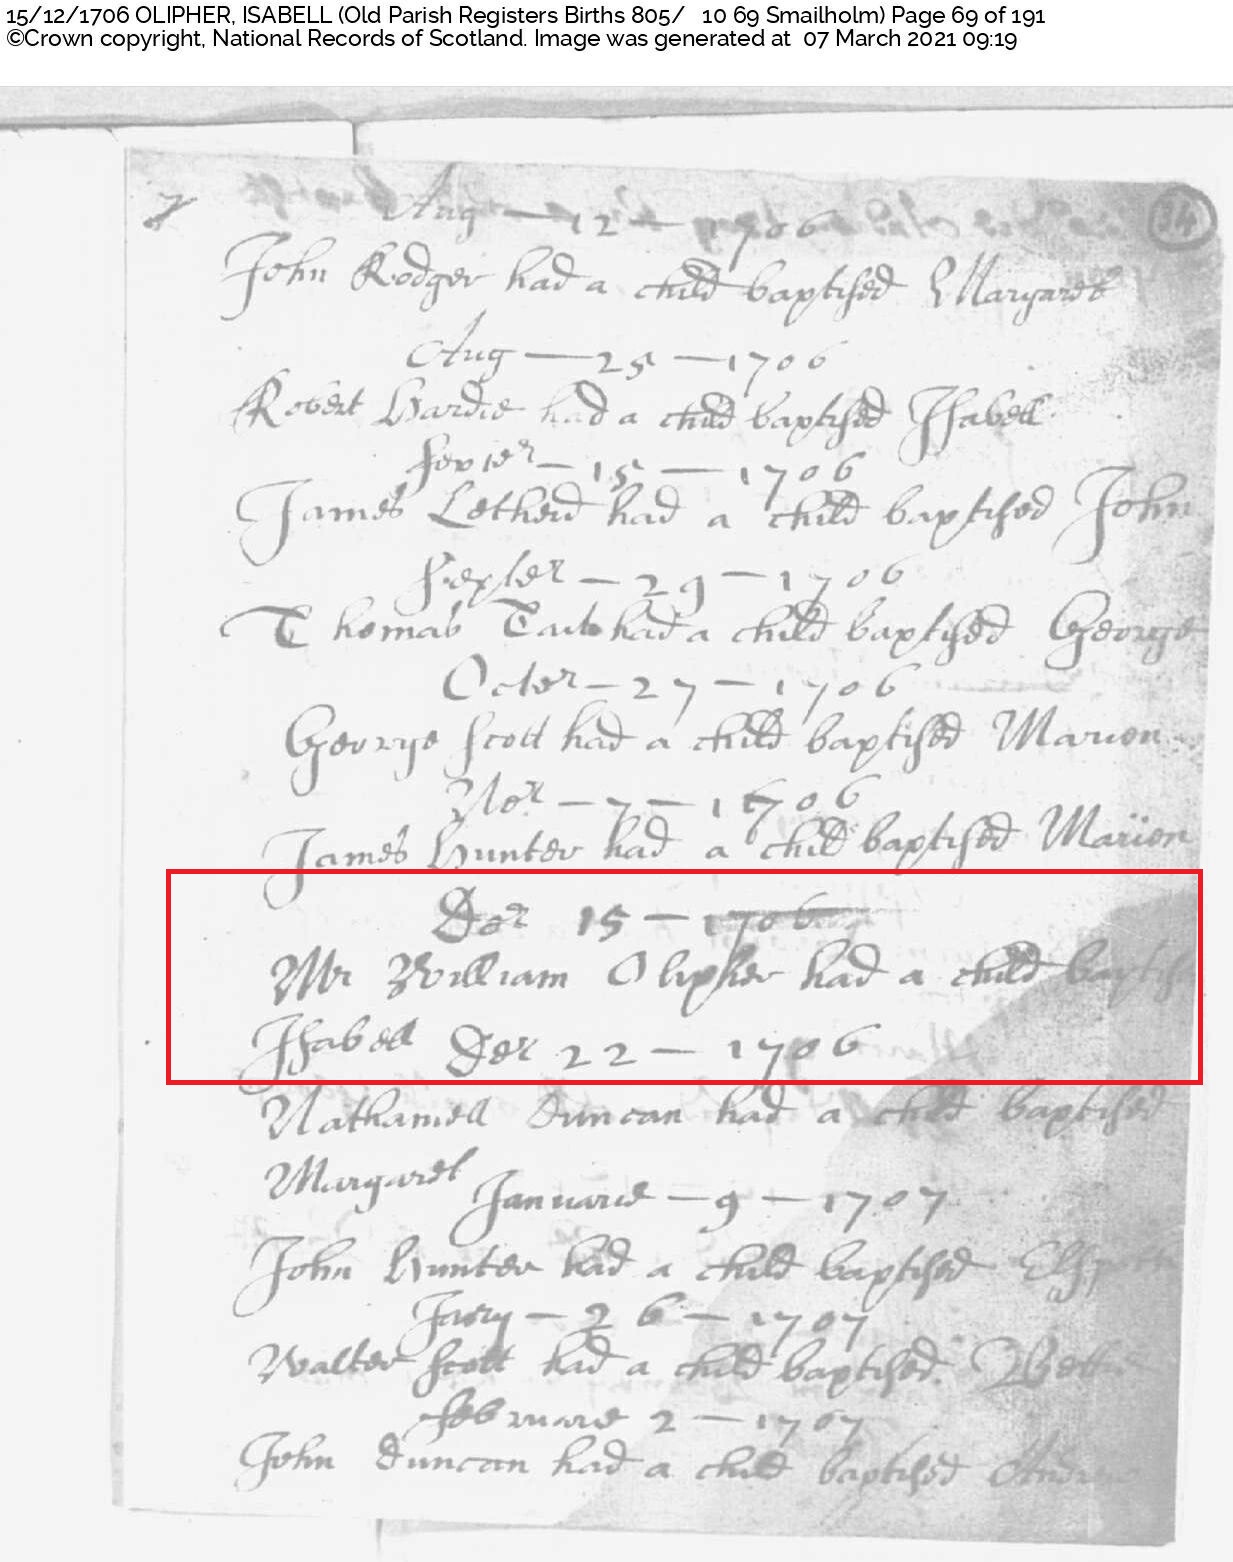 15/12/1706 OLIPHER, ISABELL (Old Parish Registers Births 805/ 10 69 Smailholm) Page 69 of 191
©Crown copyright, National Records of Scotland. Image was generated at 07 March 2021 09:19
34
Aug — 12 — 1706
John Rodger had a child baptised Margaret
Aug — 25 — 1706
Robert Hardie had a child baptised Isabell
15 — 1706
James Letheid had a child baptised John
Septer — 29 — 1706
Thomas Tait had a child baptised George
Octer — 27 — 1706
George Scott had a child baptised Marion
Nor — 7 — 1706
James Hunter had a child baptised Marion
Der 15 — 1706
Mr William Olipher had a child baptis
Isabell Der 22 — 1706
Nathaniell Duncan had a child baptised
Margaret Januarie — 9 — 1707
John Hunter had a child baptised
Jary — 26 — 1707
Walter Scott had a child baptised
februarie 2 — 1707
John Duncan had a child baptised